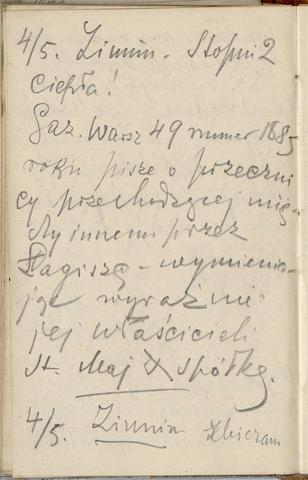 4/5. Zimno. Stopni 2
ciepła!
Gaz. Warsz 49 numer 1885
roku pisze o przeczni
cy przechodzącej mię-
dzy innemi przez
Łagiszę - wymienia-
jąc wyraźnie
jej właścicieli
St. Maj & spółkę.
4/5. Zimno Zbieram